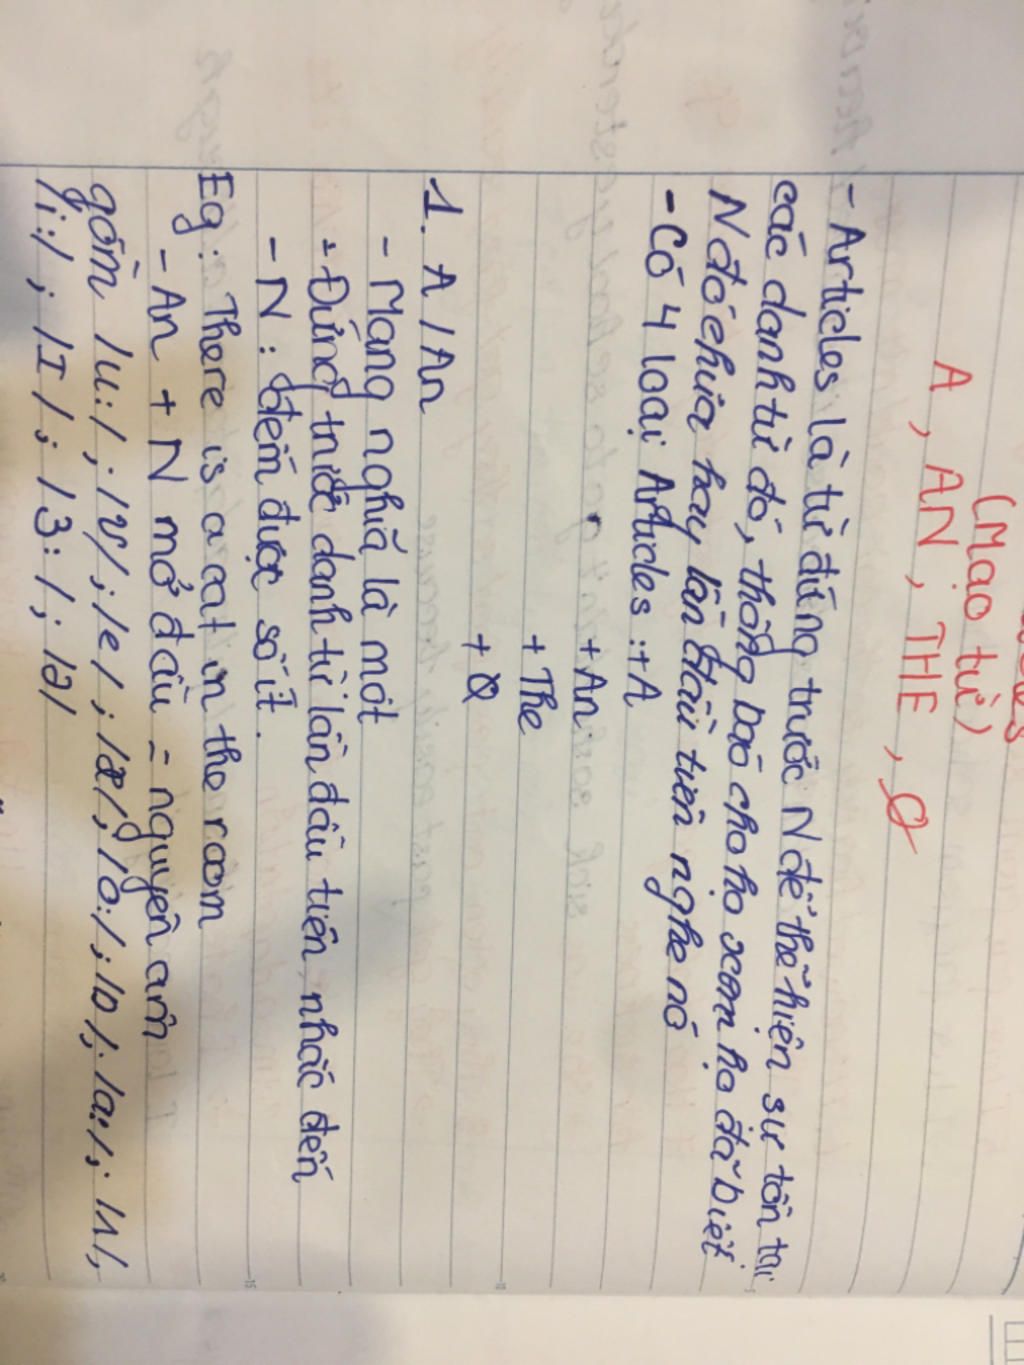 (Mạo từ)
A, AN, THE, Ø
- Articles là từ đứng trước N để thể hiện sự tồn tại
các danh từ đó, thông báo cho họ xem họ đã biết
N đó chưa hay lần đầu tiên nghe nó
- Có 4 loại Articles: + A
+ An
+ The
+ Ø
1. A / An
- Mang nghĩa là một
- Đứng trước danh từ lần đầu tiên nhắc đến
- N : đếm được số ít.
Eg: There is a cat in the room
- An + N mở đầu = nguyên âm
gồm /u:/ ; /ʊ/ ; /e/ ; /æ/ ; /ɔ:/ ; /ɒ/ ; /a:/ ; /ʌ/ ;
/i:/ ; /I/ ; /ɜ:/ ; /ə/